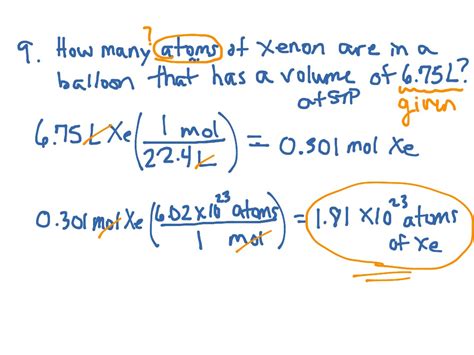 9. How many ? atoms of xenon are in a
balloon that has a volume of 6.75L?
at STP given
6.75L Xe (1 mol / 22.4L) = 0.301 mol Xe
0.301 mol Xe (6.02 x 10^23 atoms / 1 mol) = 1.81 x 10^23 atoms
of Xe